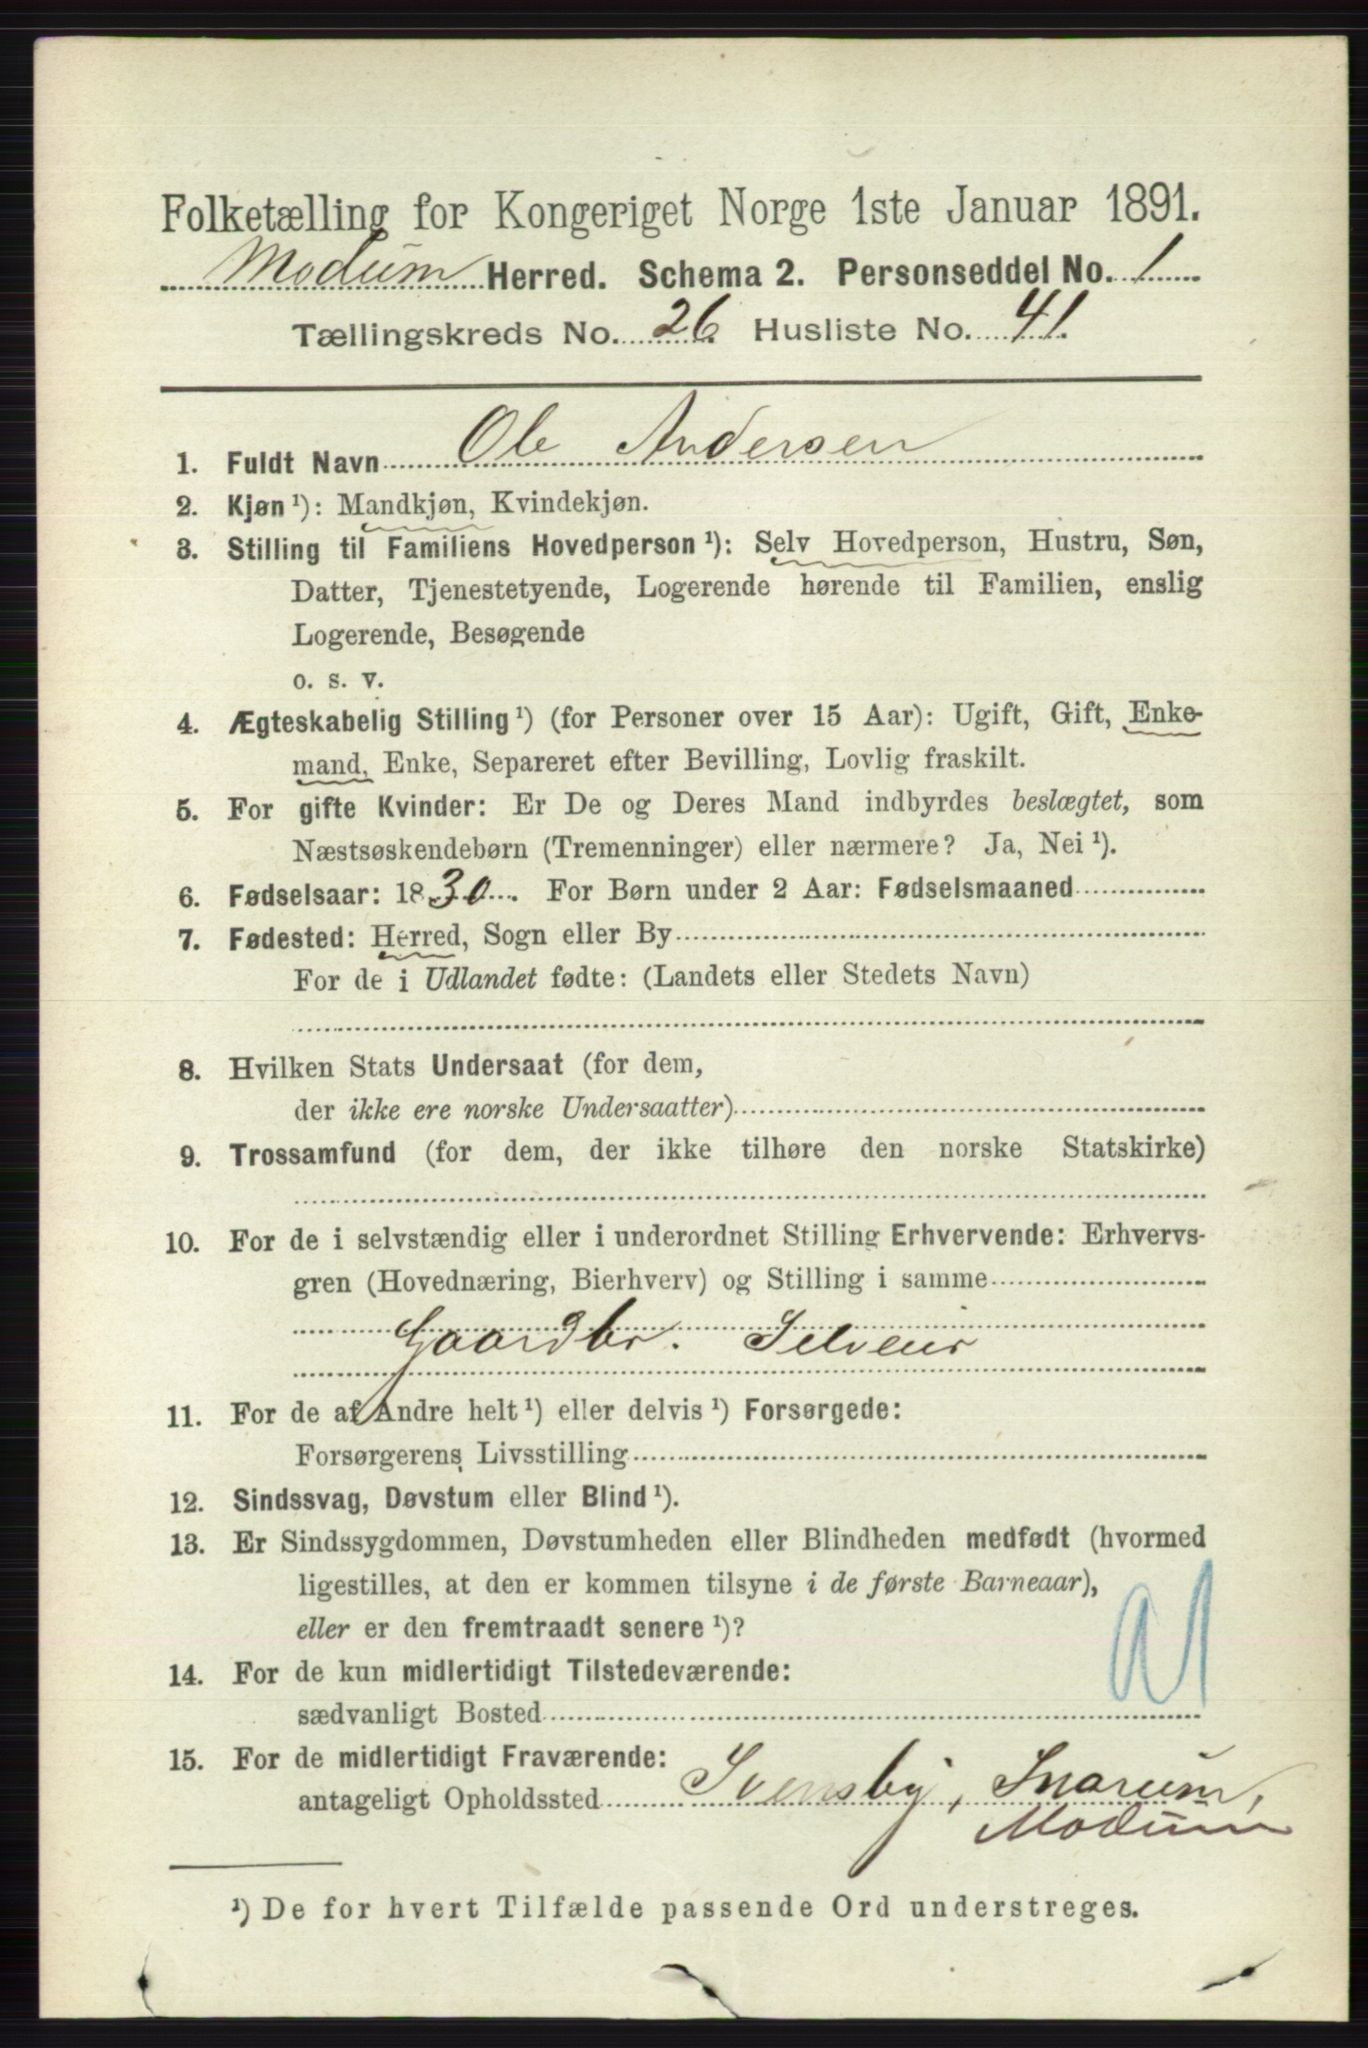 Folketælling for Kongeriget Norge 1ste Januar 1891.
Modum Herred. Schema 2. Personseddel No. 1
Tællingskreds No. 26. Husliste No. 41.
1. Fuldt Navn Ole Andersen
2. Kjøn ¹): Mandkjøn, Kvindekjøn.
3. Stilling til Familiens Hovedperson ¹): Selv Hovedperson, Hustru, Søn,
Datter, Tjenestetyende, Logerende hørende til Familien, enslig
Logerende, Besøgende
o. s. v.
4. Ægteskabelig Stilling ¹) (for Personer over 15 Aar): Ugift, Gift, Enke-
mand, Enke, Separeret efter Bevilling, Lovlig fraskilt.
5. For gifte Kvinder: Er De og Deres Mand indbyrdes beslægtet, som
Næstsøskendebørn (Tremenninger) eller nærmere? Ja, Nei ¹).
6. Fødselsaar: 1830. For Børn under 2 Aar: Fødselsmaaned
7. Fødested: Herred, Sogn eller By
For de i Udlandet fødte: (Landets eller Stedets Navn)
8. Hvilken Stats Undersaat (for dem,
der ikke ere norske Undersaatter)
9. Trossamfund (for dem, der ikke tilhøre den norske Statskirke)
10. For de i selvstændig eller i underordnet Stilling Erhvervende: Erhvervs-
gren (Hovednæring, Bierhverv) og Stilling i samme
Gaardbr. Selveier
11. For de af Andre helt ¹) eller delvis ¹) Forsørgede:
Forsørgerens Livsstilling
12. Sindssvag, Døvstum eller Blind ¹).
13. Er Sindssygdommen, Døvstumheden eller Blindheden medfødt (hvormed
ligestilles, at den er kommen tilsyne i de første Barneaar),
eller er den fremtraadt senere ¹)?
14. For de kun midlertidigt Tilstedeværende:
sædvanligt Bosted
15. For de midlertidigt Fraværende:
antageligt Opholdssted Svensby, Snarum,
Modum
¹) De for hvert Tilfælde passende Ord understreges.